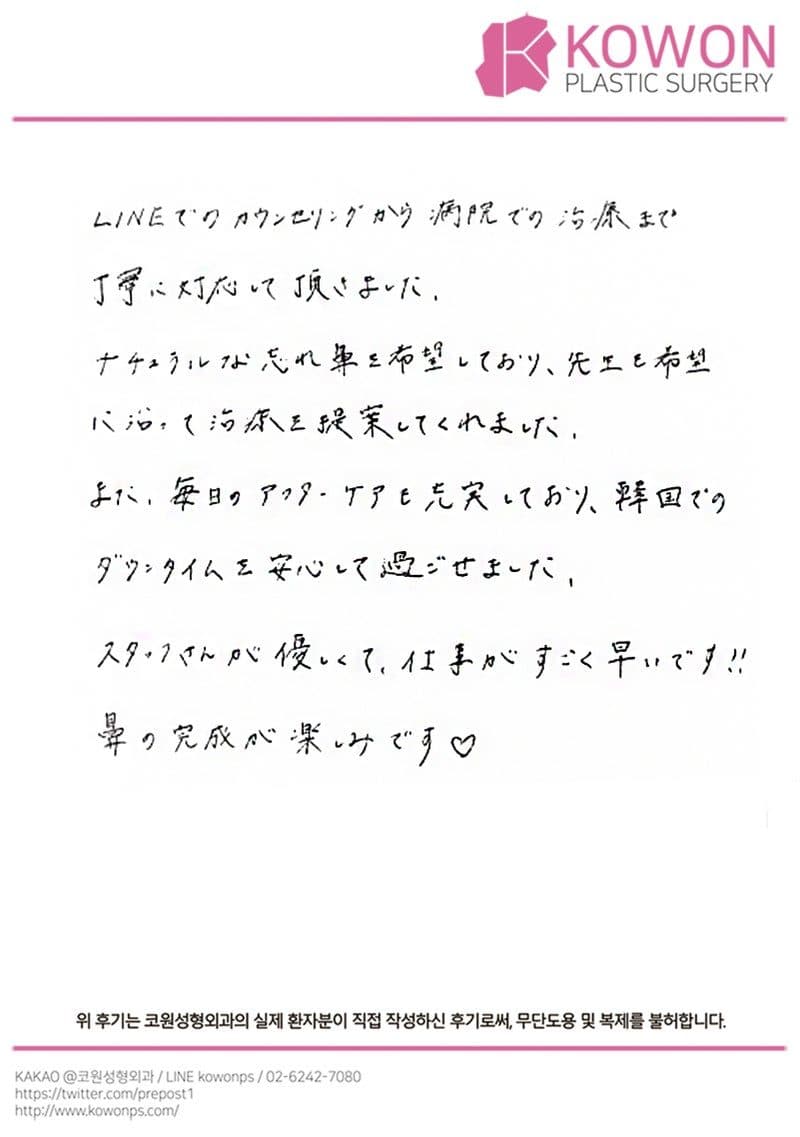 KOWON
PLASTIC SURGERY
LINEでのカウンセリングから病院での治療まで
丁寧に対応して頂きました。
ナチュラルな忘れ鼻を希望しており、先生も希望
に沿って治療を提案してくれました。
また、毎日のアフターケアも充実しており、韓国での
ダウンタイムを安心して過ごせました。
スタッフさんが優しくて、仕事がすごく早いです!!
鼻の完成が楽しみです♡
위 후기는 코원성형외과의 실제 환자분이 직접 작성하신 후기로써, 무단도용 및 복제를 불허합니다.
KAKAO @코원성형외과 / LINE kowonps / 02-6242-7080
https://twitter.com/prepost1
http://www.kowonps.com/